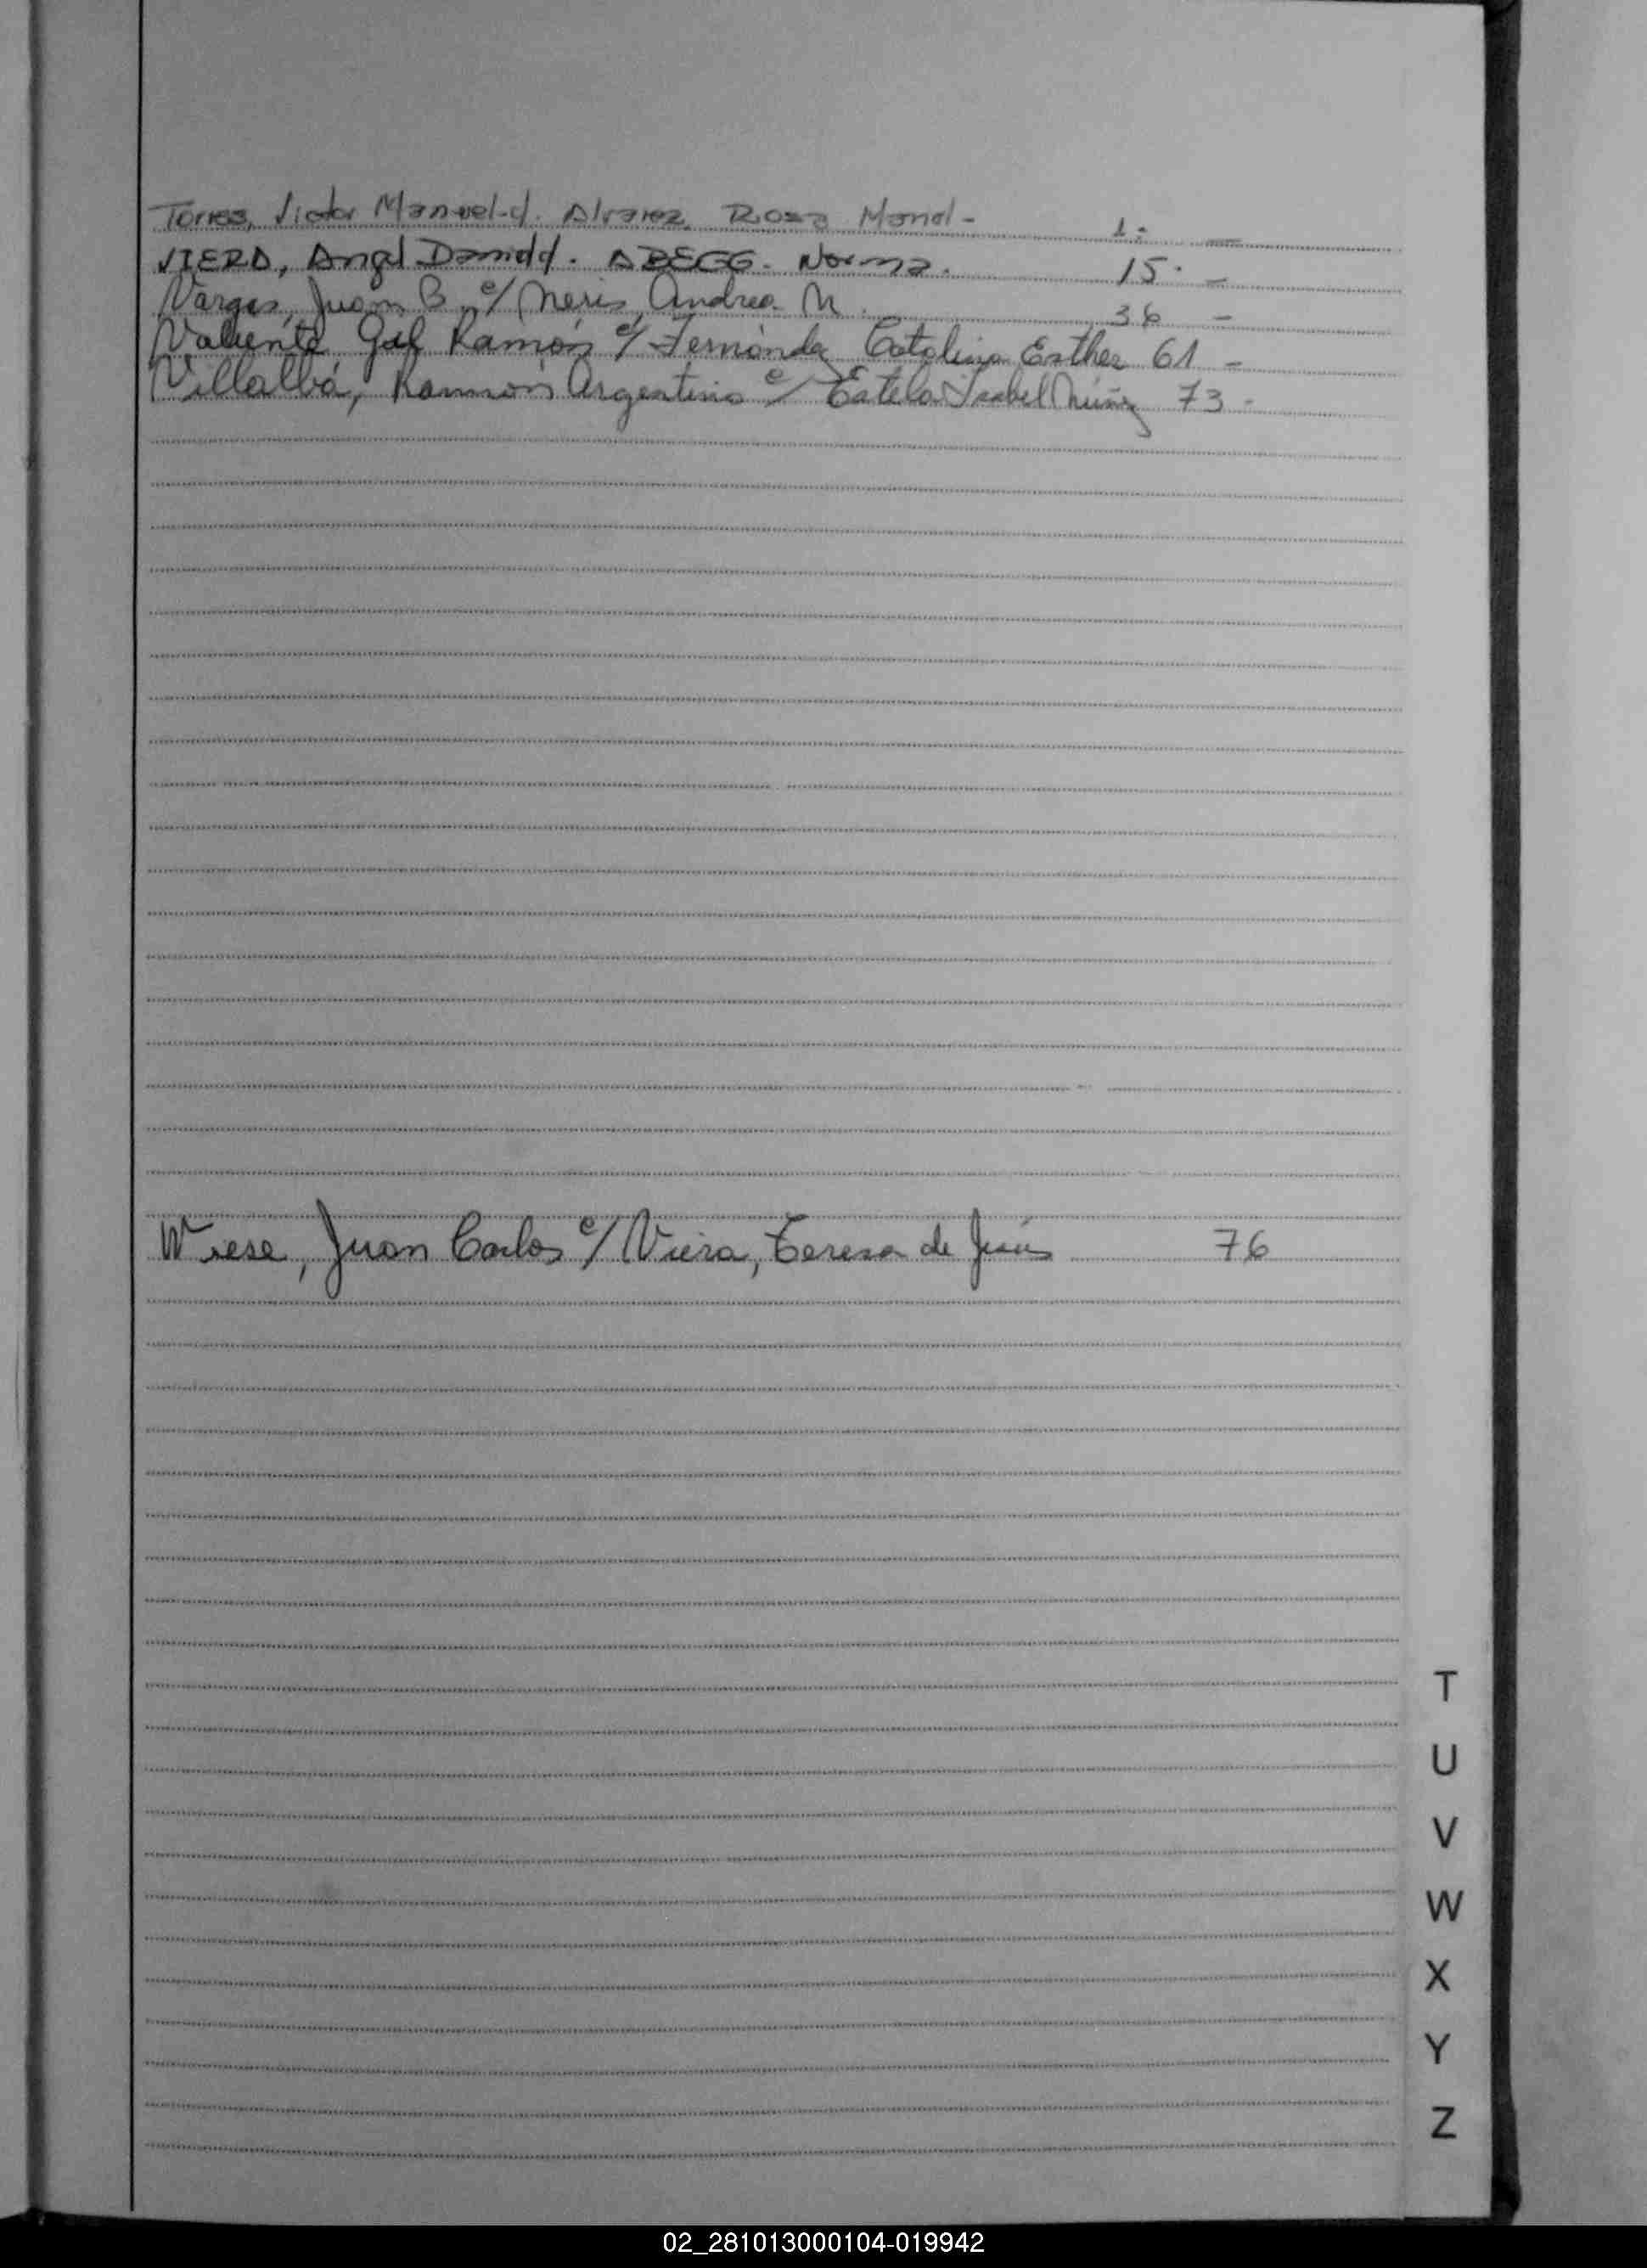 Torres, Victor Manuel c/. Alvarez Rosa Manol - 1. -
VIERA, Angel Daniel c/. ABEGG. Norma. 15. -
Vargas, Juan B. c/ Neris, Andrea M. 36 -
Valiente Gil Ramón c/ Fernández Catalina Esther 61 -
Villalba, Ramón Argentino c/ Estela Isabel Núñez 73 -
Wiese, Juan Carlos c/ Viera, Teresa de Jesús 76
T
U
V
W
X
Y
Z
02_281013000104-019942